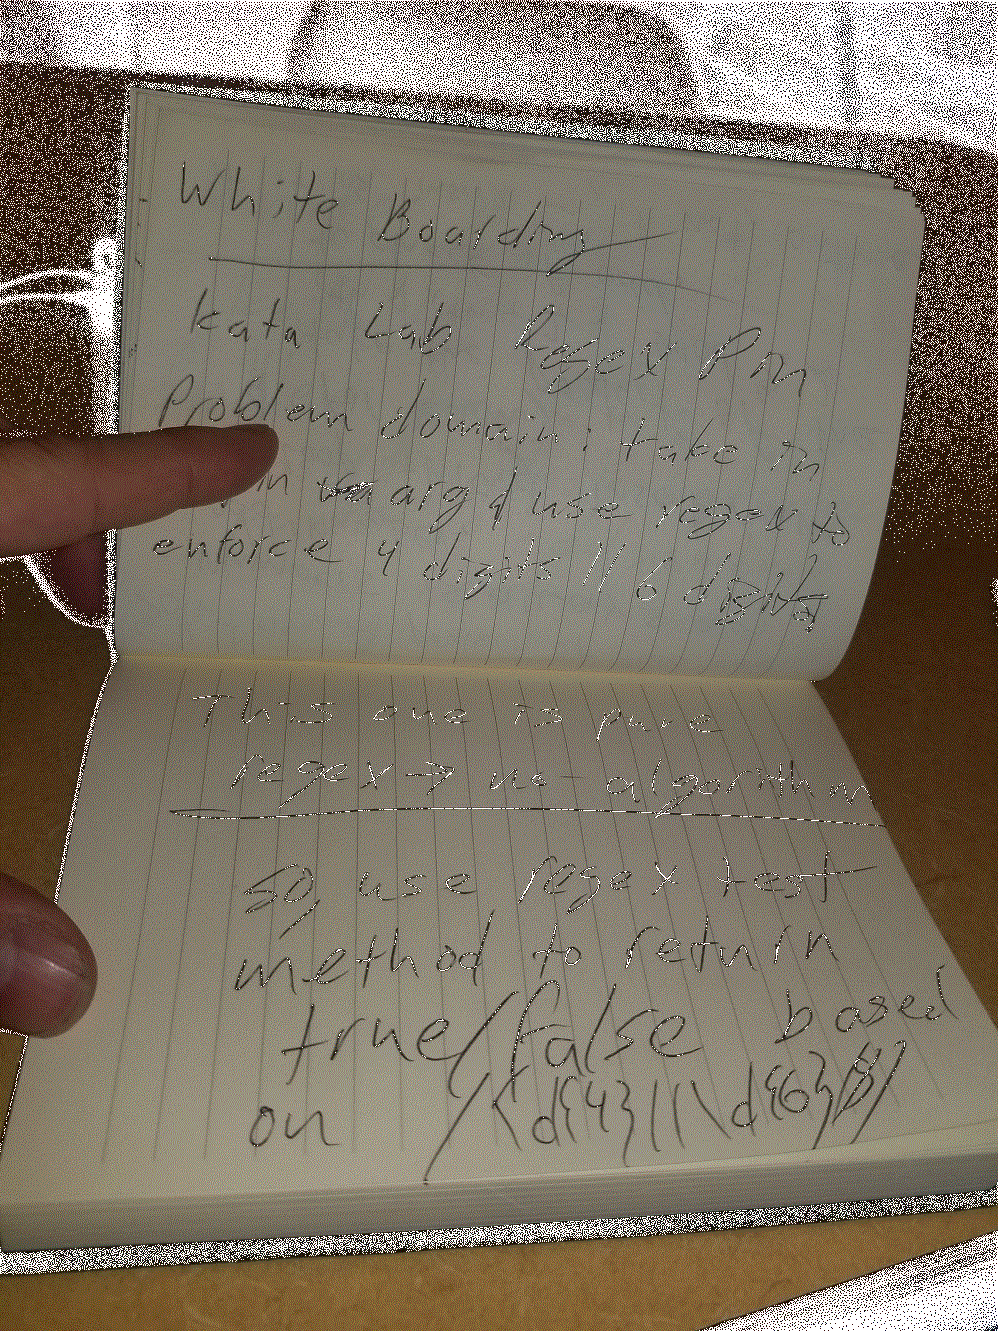 White Boarding
Kata Lab Regex Pm
Problem domain: take in
arg & use regex to
enforce 4 digits || 6 digits
This one is pure
regex → no algorithm
So, use regex test
method to return
true/false based
on